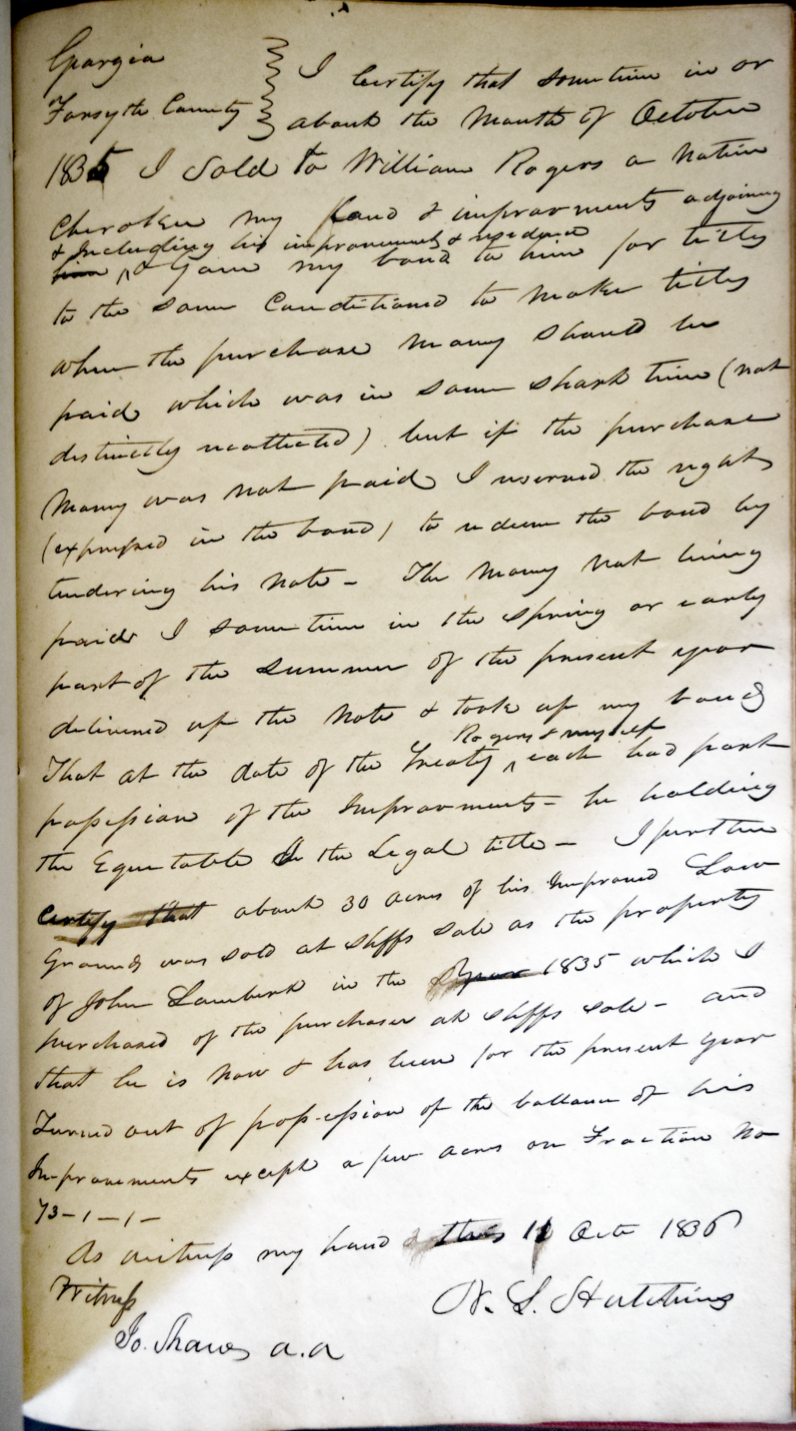 Georgia
Forsyth County
I Certify that some time in or
about the Month of October
1835 I Sold to William Rogers a Native
Cherokee my land & improvements adjoining
& Including his improvements & residence
him & Gave my bond to him for titles
to the same Conditioned to make titles
when the purchase money should be
paid which was in some short time (not
distinctly recollected) but if the purchase
Money was not paid I reserved the right
(expressed in the bond) to redeem the bond by
tendering his Note - The Money not being
paid I some time in the Spring or early
part of the Summer of the present year
delivered up the Note & took up my bond
Rogers & myself
That at the date of the Treaty each had part
possession of the Improvements - he holding
the Equitable & I the Legal title - I further
Certify that about 30 acres of his Improved Low
Grounds was sold at shffs sale as the property
of John Lambert in the Year 1835 which I
purchased of the purchaser at shffs sale - and
that he is now & has been for the present year
Turned out of possession of the ballance of his
Improvements except a few acres on Fraction No
73-1-1-
As witness my hand this 11 Octo 1836
Witness
N. L. Hutchins
Jo. Shaw a.a